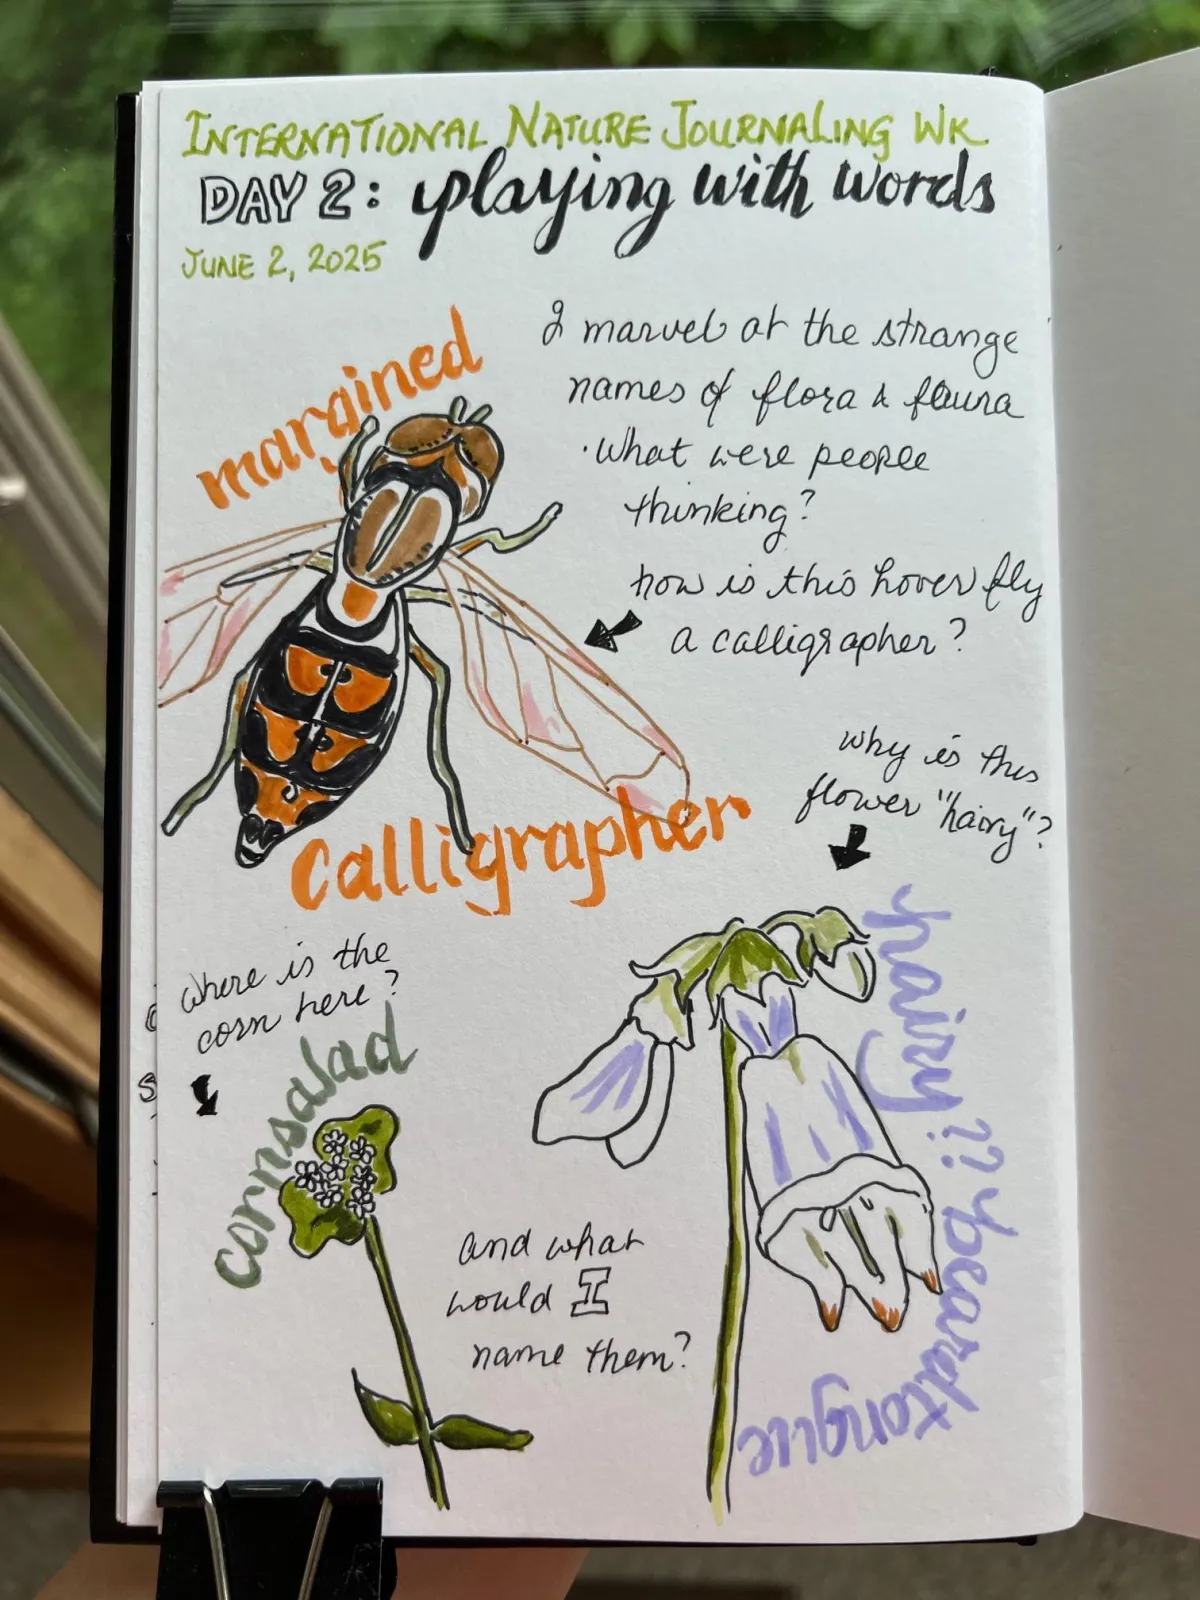 INTERNATIONAL NATURE JOURNALING WK
DAY 2: playing with words
JUNE 2, 2025
margined
I marvel at the strange
names of flora & fauna
· What were people
thinking?
how is this hover fly
a calligrapher?
Calligrapher
why is this
flower "hairy"?
hairy?? beardtongue
where is the
corn here?
cornsalad
and what
would I
name them?